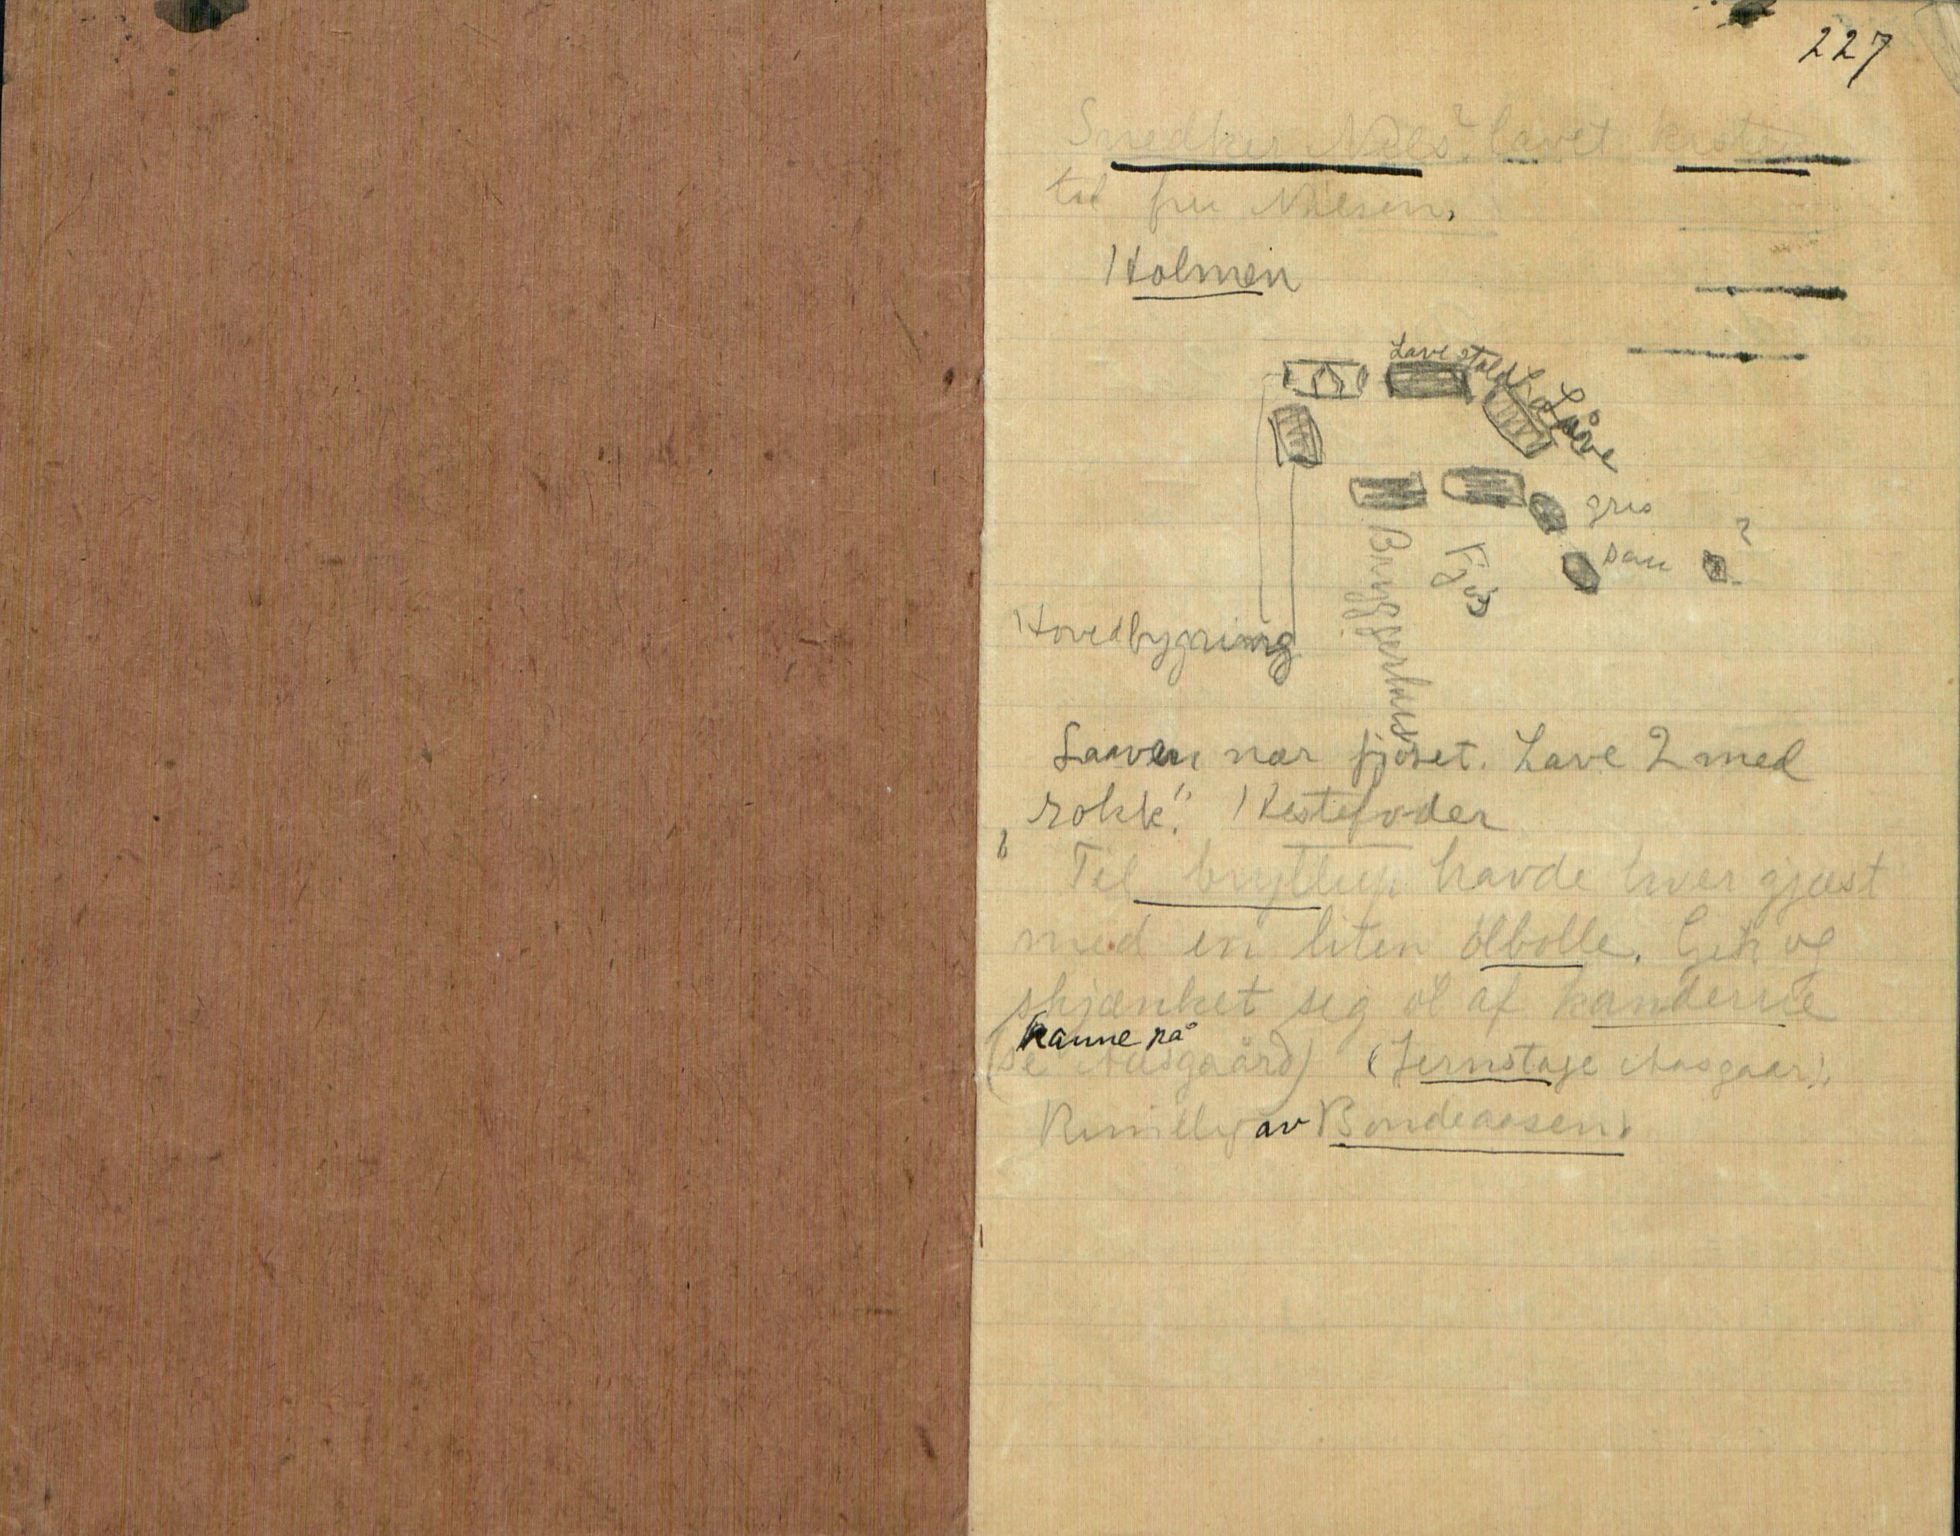 227
Snedker Nils? lavet kisten
til fru Nilsen.
Holmen
Lave stald
Låve
gris
sau ?
Fjøs
Bryggerhus
Hovedbygning
Laaven nær fjøset. Lave 2 med
rokk". Hestefoder
Til bryllup havde hver gjæst
med en liten ølbolle. Gik og
skjænket seg øl af kanderne
kanne på
(se Aasgaård) (Jernstage Aasgaar).
av Bondeaasen.